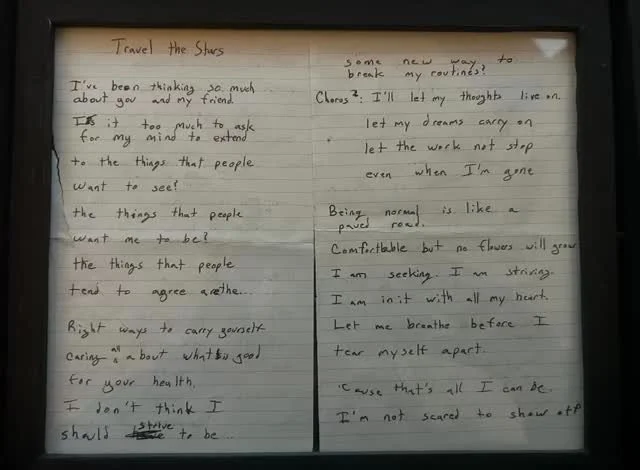 Travel the Stars
I've been thinking so much
about you and my friend
Is it too much to ask
for my mind to extend
to the things that people
want to see?
the things that people
want me to be?
the things that people
tend to agree are the...
Right ways to carry yourself
caring all about what is good
for your health.
I don't think I
should strive to be...
some new way to
break my routines?
Chorus 2: I'll let my thoughts live on.
let my dreams carry on
let the work not stop
even when I'm gone
Being normal is like a
paved road.
Comfortbable but no flowers will grow
I am seeking. I am striving.
I am in it with all my heart.
Let me breathe before I
tear myself apart.
'Cause that's all I can be.
I'm not scared to show off